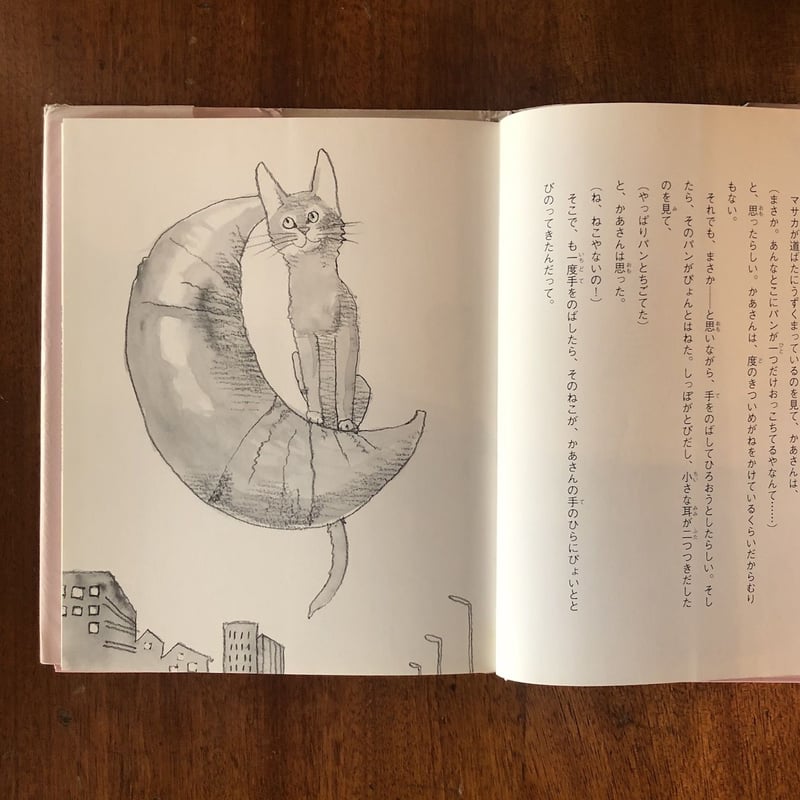 マサカが道ばたにうずくまっているのを見て、かあさんは、
(まさか。あんなとこにパンが一つだけおっこちてるやなんて……)
と、思ったらしい。かあさんは、度のきついめがねをかけているくらいだからむり
もない。
それでも、まさか――と思いながら、手をのばしてひろおうとしたらしい。そし
たら、そのパンがぴょんとはねた。しっぽがとびだし、小さな耳が二つつきだした
のを見て、
(やっぱりパンとちごてた)
と、かあさんは思った。
(ね、ねこやないの!)
そこで、も一度手をのばしたら、そのねこが、かあさんの手のひらにぴょいとと
びのってきたんだって。